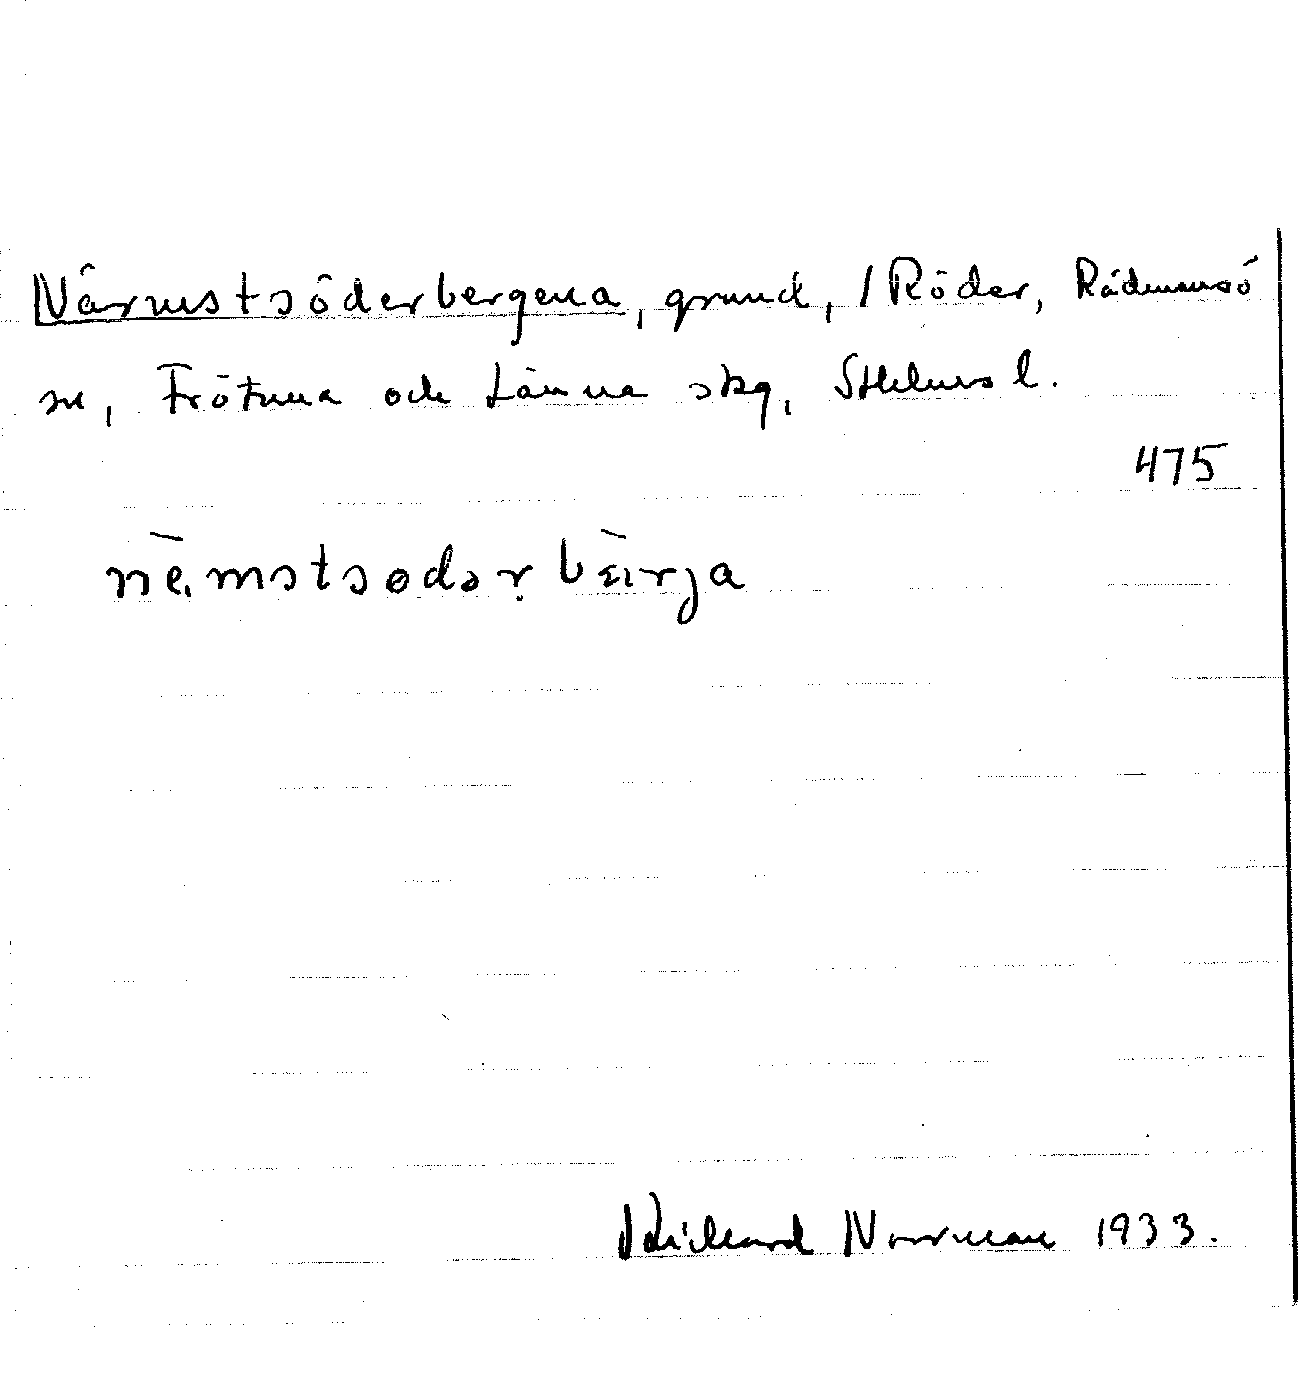 Närmstsöderbergena, grund, / Röder, Rådmansö
sn, Frötuna och Länna skg, Sthlms l.
475
nèmstsødəṛbèirja
Richard Norrman 1933.